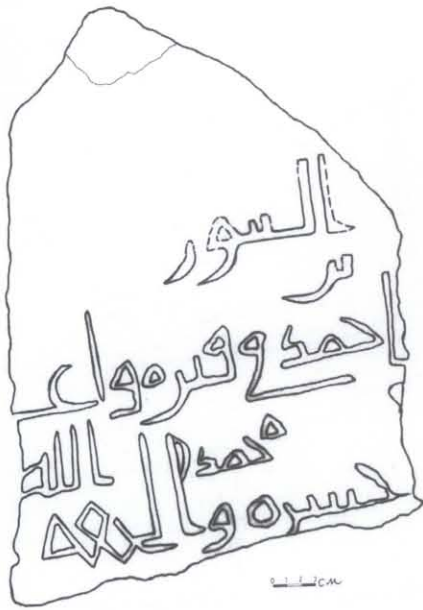 السور
بن
احمد في قبره وا
محمد الله
حشره والحقه
cm